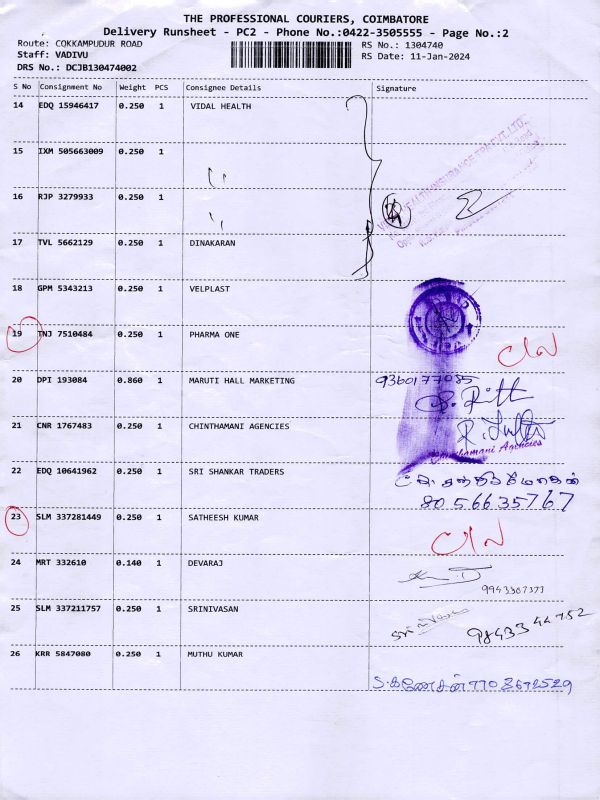 THE PROFESSIONAL COURIERS, COIMBATORE
Delivery Runsheet - PC2 - Phone No.:0422-3505555 - Page No.:2
Route: COKKAMPUDUR ROAD RS No.: 1304740
Staff: VADIVU RS Date: 11-Jan-2024
DRS No.: DCJB130474002
S No Consignment No Weight PCS Consignee Details Signature
14 EDQ 15946417 0.250 1 VIDAL HEALTH
15 IXM 505663009 0.250 1
16 RJP 3279933 0.250 1
17 TVL 5662129 0.250 1 DINAKARAN
18 GPM 5343213 0.250 1 VELPLAST
19 TNJ 7510484 0.250 1 PHARMA ONE
20 DPI 193084 0.860 1 MARUTI HALL MARKETING 9360177085
21 CNR 1767483 0.250 1 CHINTHAMANI AGENCIES
Agencies
22 EDQ 10641962 0.250 1 SRI SHANKAR TRADERS
8056635767
23 SLM 337281449 0.250 1 SATHEESH KUMAR
24 MRT 332610 0.140 1 DEVARAJ
9943367373
25 SLM 337211757 0.250 1 SRINIVASAN
9843344752
26 KRR 5847080 0.250 1 MUTHU KUMAR